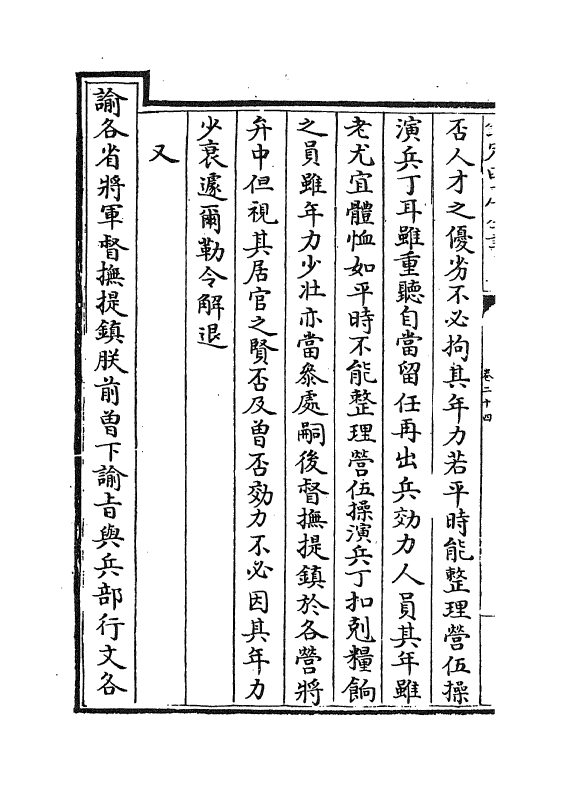 否人才之優劣不必拘其年力若平時能整理營伍操
演兵丁耳雖重聽自當留任再出兵効力人員其年雖
老尤宜體恤如平時不能整理營伍操演兵丁扣剋糧餉
之員雖年力少壯亦當叅處嗣後督撫提鎮於各營將
弁中但視其居官之賢否及曾否効力不必因其年力
少衰遽爾勒令解退
又
諭各省將軍督撫提鎮朕前曽下諭㫖與兵部行文各
卷二十四